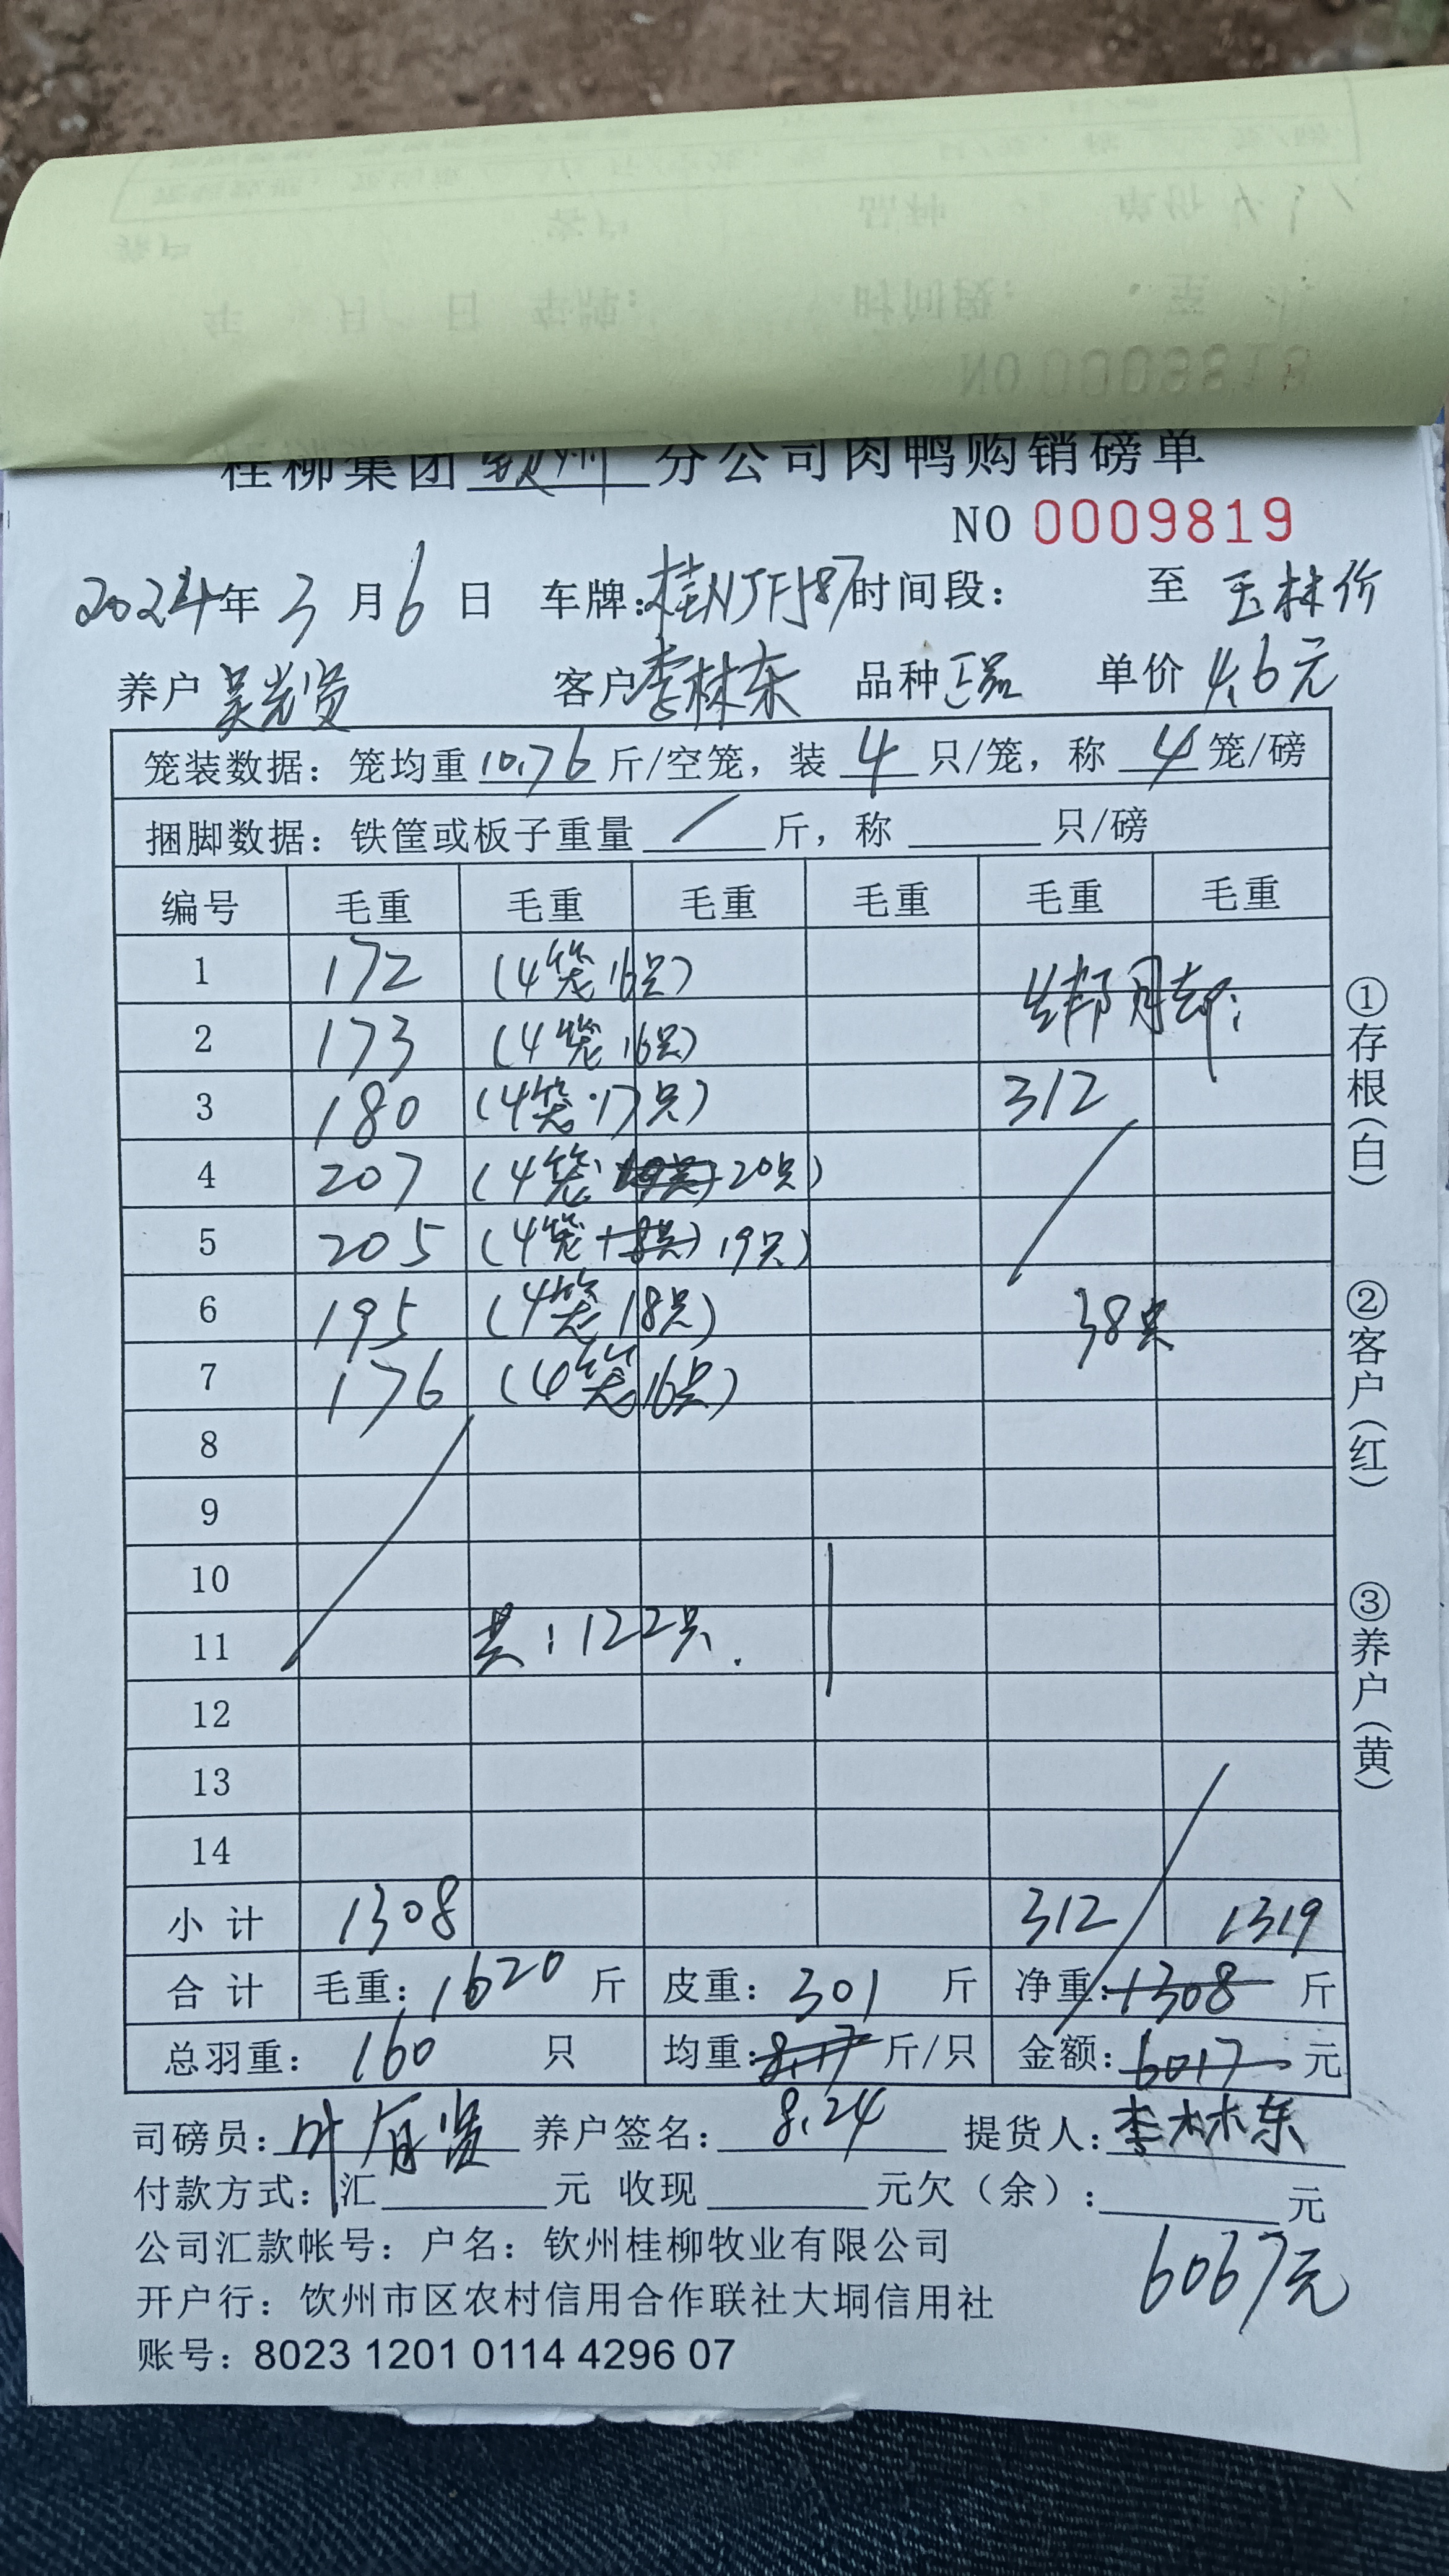 桂柳集团 钦州 分公司肉鸭购销磅单
NO 0009819
2024年 3 月 6 日 车牌:桂NJF187 时间段: 至 玉林价
养户 客户 李林东 品种 正品 单价 4.6元
笼装数据: 笼均重 10.76 斤/空笼, 装 4 只/笼, 称 4 笼/磅
捆脚数据: 铁筐或板子重量 / 斤, 称 只/磅
编号 毛重 毛重 毛重 毛重 毛重 毛重
1 172 (4笼 16只)
2 173 (4笼 16只)
3 180 (4笼·17只) 312
4 207 (4笼 20只)
5 205 (4笼 19只)
6 195 (4笼 18只) 38只
7 176 (4笼 16只)
8
9
10
11 共:122只.
12
13
14
小 计 1308 312 1319
合 计 毛重: 1620 斤 皮重: 301 斤 净重: 1308 斤
总羽重: 160 只 均重: 8.17 斤/只 金额: 6017 元
司磅员: 养户签名: 8.24 提货人: 李林东
付款方式: 汇 元 收现 元欠(余): 元
公司汇款帐号: 户名: 钦州桂柳牧业有限公司
6067元
开户行: 饮州市区农村信用合作联社大垌信用社
账号: 8023 1201 0114 4296 07
①存根(白)
②客户(红)
③养户(黄)